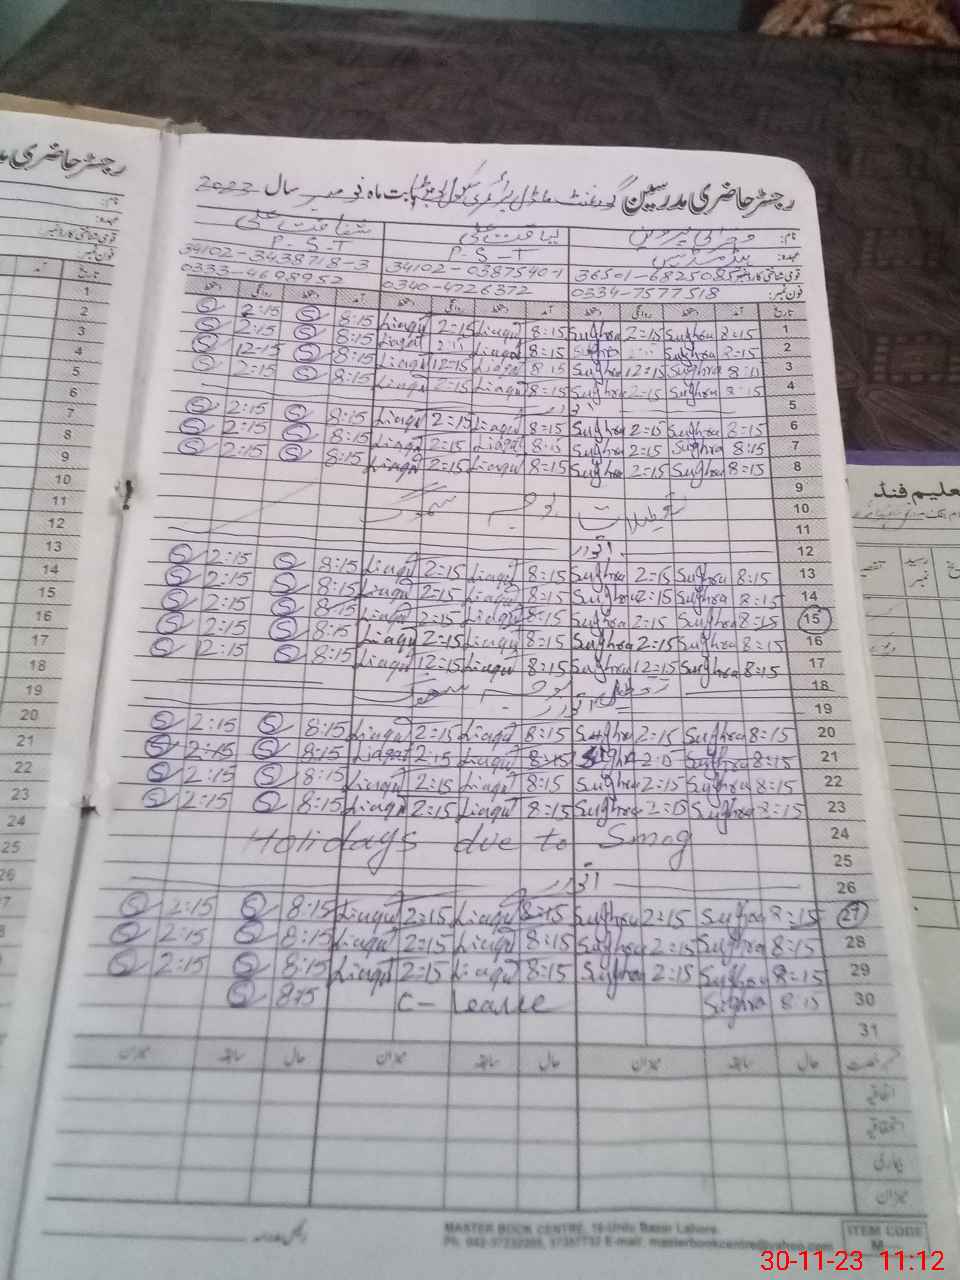 رجسٹر حاضری مدرسین گورنمنٹ ماڈل پرائمری سکول بابت ماہ نومبر سال 2023
نام:
عہدہ:
P-S-T P-S-T
قومی شناختی کارڈ نمبر: 36501-6825085 34102-0387540-1 34102-3438718-3
فون نمبر: 0334-7577518 0340-4726372 0333-4698952
تاریخ آمد دستخط روانگی دستخط آمد دستخط روانگی دستخط آمد دستخط روانگی دستخط
1 8:15 Sughra 2:15 Sughra 8:15 Liaqat 2:15 Liaqat 8:15 S 2:15 S
2 8:15 Sughra Sughra 8:15 Liaqat 2:15 Liaqat 8:15 S 2:15 S
3 8:15 Sughra 12:15 Sughra 8:15 Liaqat 12:15 Liaqat 8:15 S 12-15 S
4 8:15 Sughra 2:15 Sughra 8:15 Liaqat 2:15 Liaqat 8:15 S 2:15 S
5 اتوار
6 8:15 Sughra 2:15 Sughra 8:15 Liaqat 2:15 Liaqat 8:15 S 2:15 S
7 8:15 Sughra 2:15 Sughra 8:15 Liaqat 2:15 Liaqat 8:15 S 2:15 S
8 8:15 Sughra 2:15 Sughra 8:15 Liaqat 2:15 Liaqat 8:15 S 2:15 S
9
10 تعطیلات بوجہ سموگ
11
12 اتوار
13 8:15 Sughra 2:15 Sughra 8:15 Liaqat 2:15 Liaqat 8:15 S 2:15 S
14 8:15 Sughra 2:15 Sughra 8:15 Liaqat 2:15 Liaqat 8:15 S 2:15 S
15 8:15 Sughra 2:15 Sughra 8:15 Liaqat 2:15 Liaqat 8:15 S 2:15 S
16 8:15 Sughra 2:15 Sughra 8:15 Liaqat 2:15 Liaqat 8:15 S 2:15 S
17 8:15 Sughra 12:15 Sughra 8:15 Liaqat 12:15 Liaqat 8:15 S 2:15 S
18 تعطیل بوجہ سموگ
19 اتوار
20 8:15 Sughra 2:15 Sughra 8:15 Liaqat 2:15 Liaqat 8:15 S 2:15 S
21 8:15 Sughra 2:15 8:15 Liaqat 2:15 Liaqat 8:15 S 2:15 S
22 8:15 Sughra 2:15 Sughra 8:15 Liaqat 2:15 Liaqat 8:15 S 2:15 S
23 8:15 Sughra 2:15 Sughra 8:15 Liaqat 2:15 Liaqat 8:15 S 2:15 S
24 Holidays due to Smog
25
26 اتوار
27 8:15 Sughra 2:15 Sughra 8:15 Liaqat 2:15 Liaqat 8:15 S 2:15 S
28 8:15 Sughra 2:15 Sughra 8:15 Liaqat 2:15 Liaqat 8:15 S 2:15 S
29 8:15 Sughra 2:15 Sughra 8:15 Liaqat 2:15 Liaqat 8:15 S 2:15 S
30 8:15 Sughra C-leave 8:15 S
31
رخصت حال سابقہ میزان حال سابقہ میزان حال سابقہ میزان
اتفاقیہ
استحقاقیہ
بیماری
میزان
MASTER BOOK CENTRE, 16-Urdu Bazar Lahore.
E-mail: masterbookcentre@yahoo.com
ITEM CODE
M
رجسٹر حاضری
نام:
عہدہ:
قومی شناختی کارڈ نمبر:
فون نمبر:
تاریخ آمد
1
2
3
4
5
6
7
8
9
10
11
12
13
14
15
16
17
18
19
20
21
22
23
24
25
26
تعلیم فنڈ
رسید نمبر
30-11-23 11:12